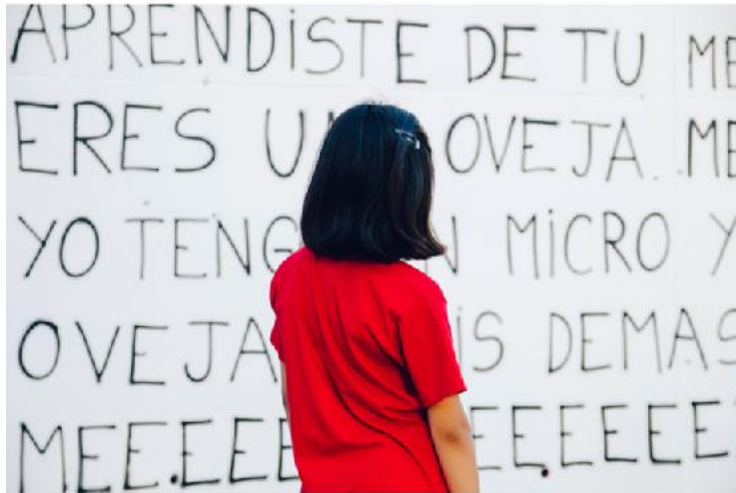 APRENDiSTE DE TU ME
ERES U OVEJA.. ME
YO TENG N MiCRO Y
OVEJA iS DEMAS
MEE.EEE EE.EEEEE